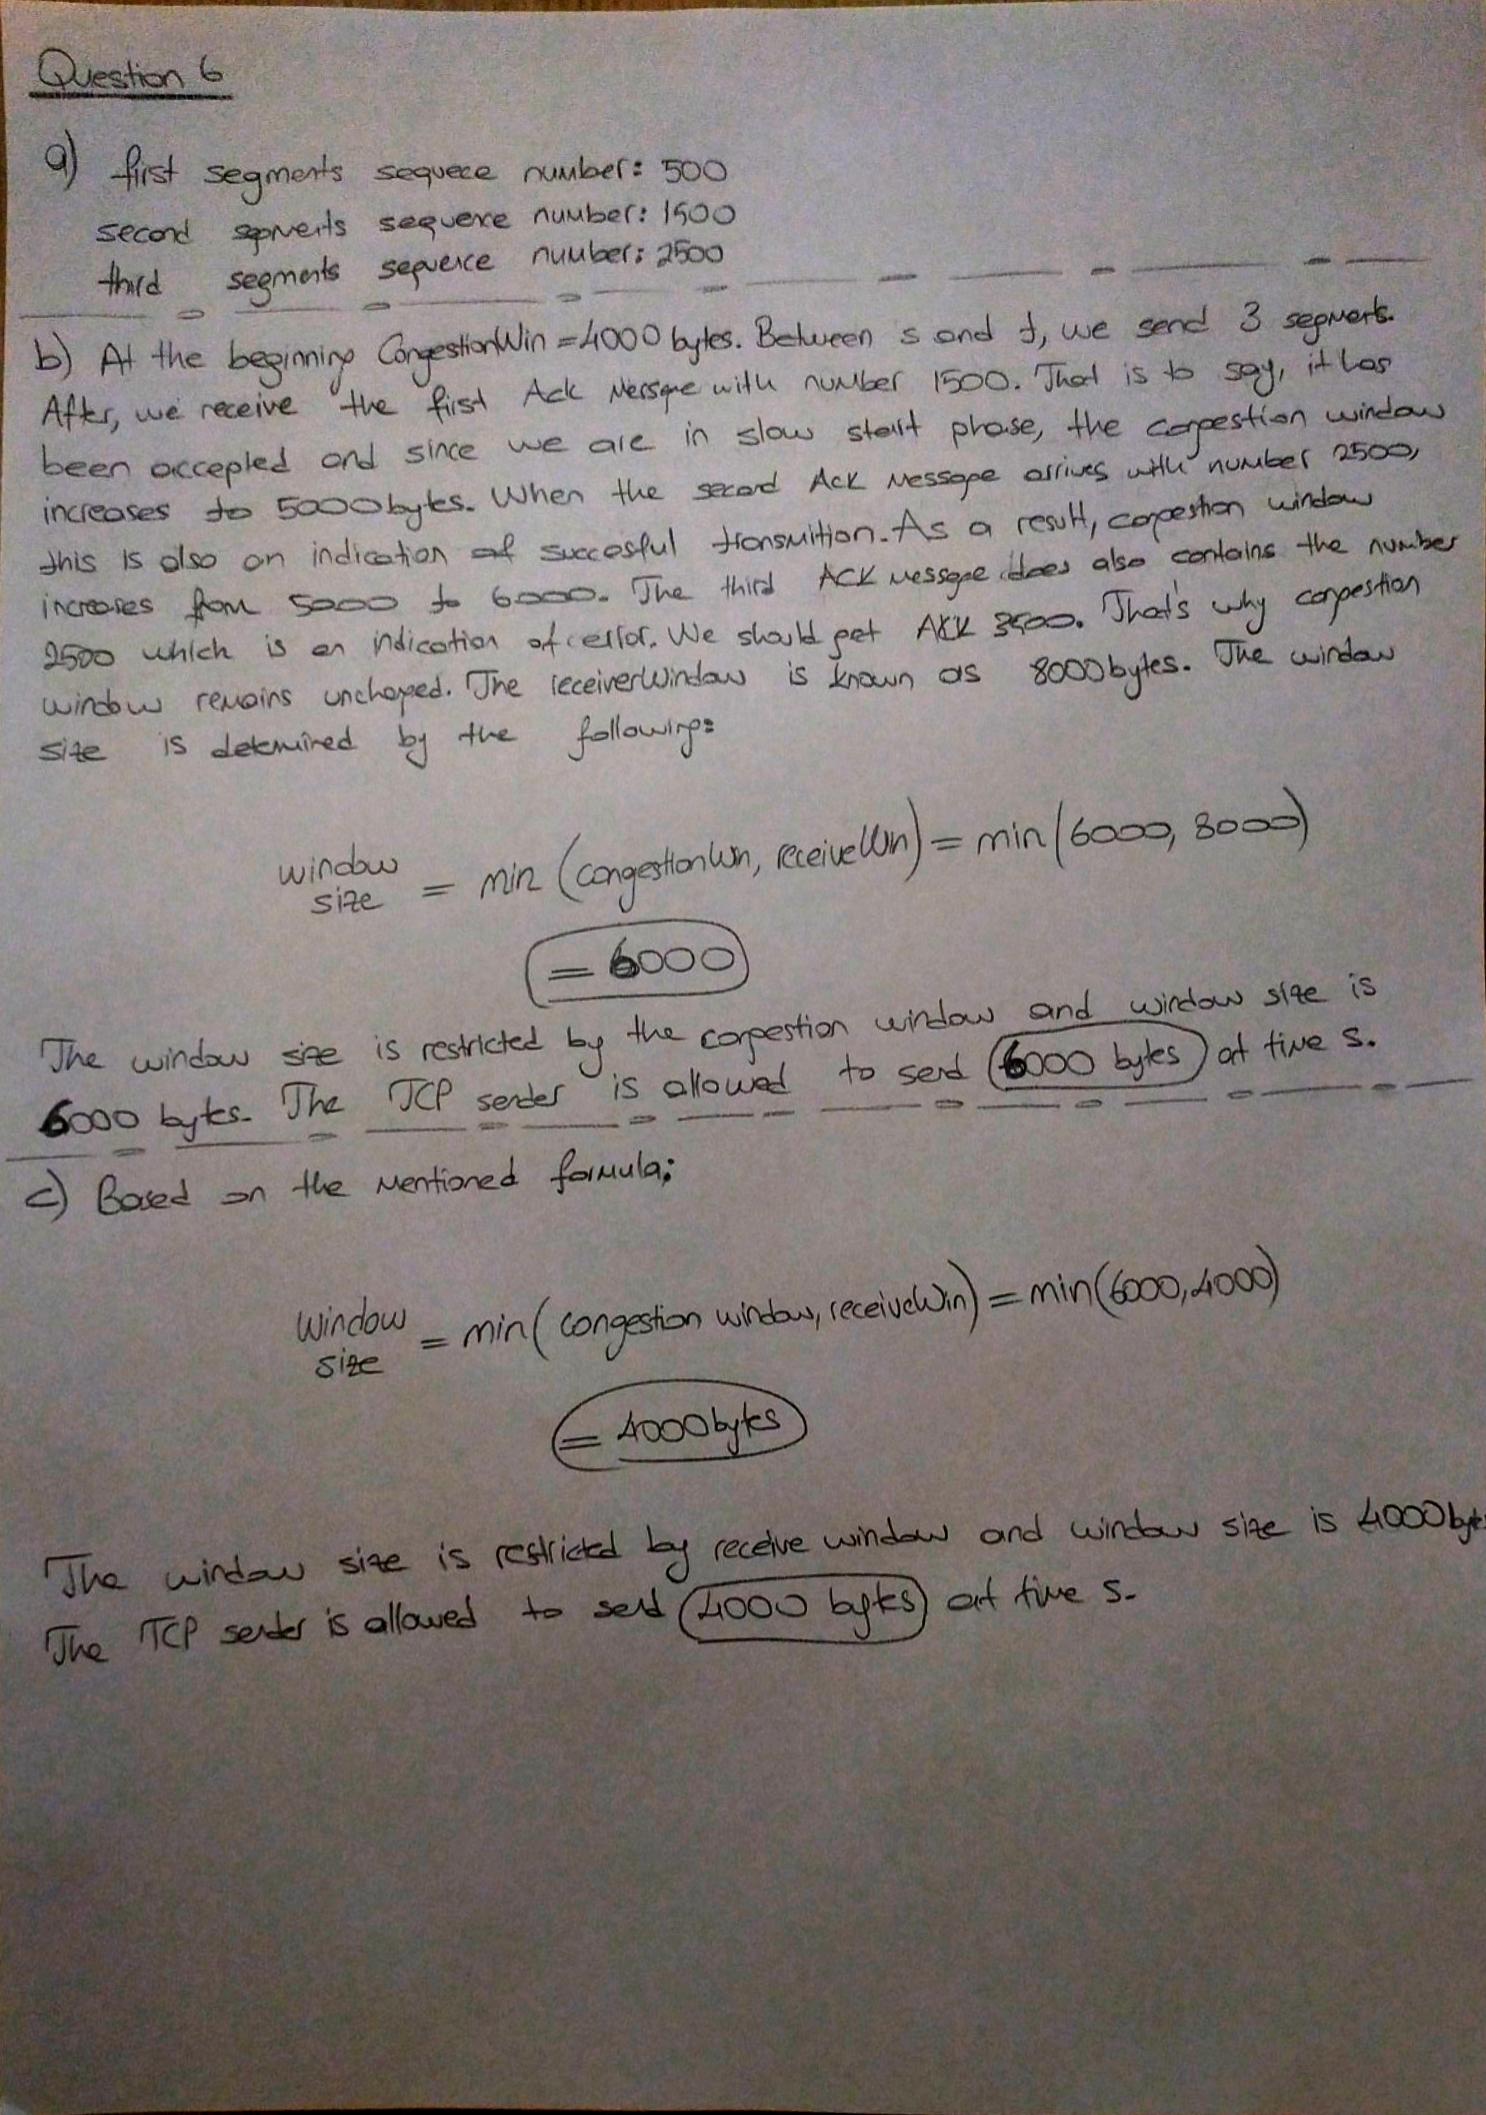 Question 6
a) first segments sequece number: 500
second segments sequence number: 1500
third segments sequence number: 2500
b) At the beginning CongestionWin = 4000 bytes. Between s and t, we send 3 segments.
After, we receive the first Ack Message with number 1500. That is to say, it has
been accepted and since we are in slow start phase, the congestion window
increases to 5000 bytes. When the second Ack Message arrives with number 2500,
this is also an indication of succesful transmition. As a result, congestion window
increases from 5000 to 6000. The third ACK message does also contains the number
2500 which is an indication of error. We should get ACK 3500. That's why congestion
window remains unchanged. The receiverWindow is known as 8000 bytes. The window
size is determined by the following:
window size = min (congestionWin, receiveWin) = min (6000, 8000)
= 6000
The window size is restricted by the congestion window and window size is
6000 bytes. The TCP sender is allowed to send 6000 bytes at time s.
c) Based on the mentioned formula;
Window size = min( congestion window, receiveWin) = min(6000, 4000)
= 4000 bytes
The window size is restricted by receive window and window size is 4000 byte
The TCP sender is allowed to send 4000 bytes at time s.